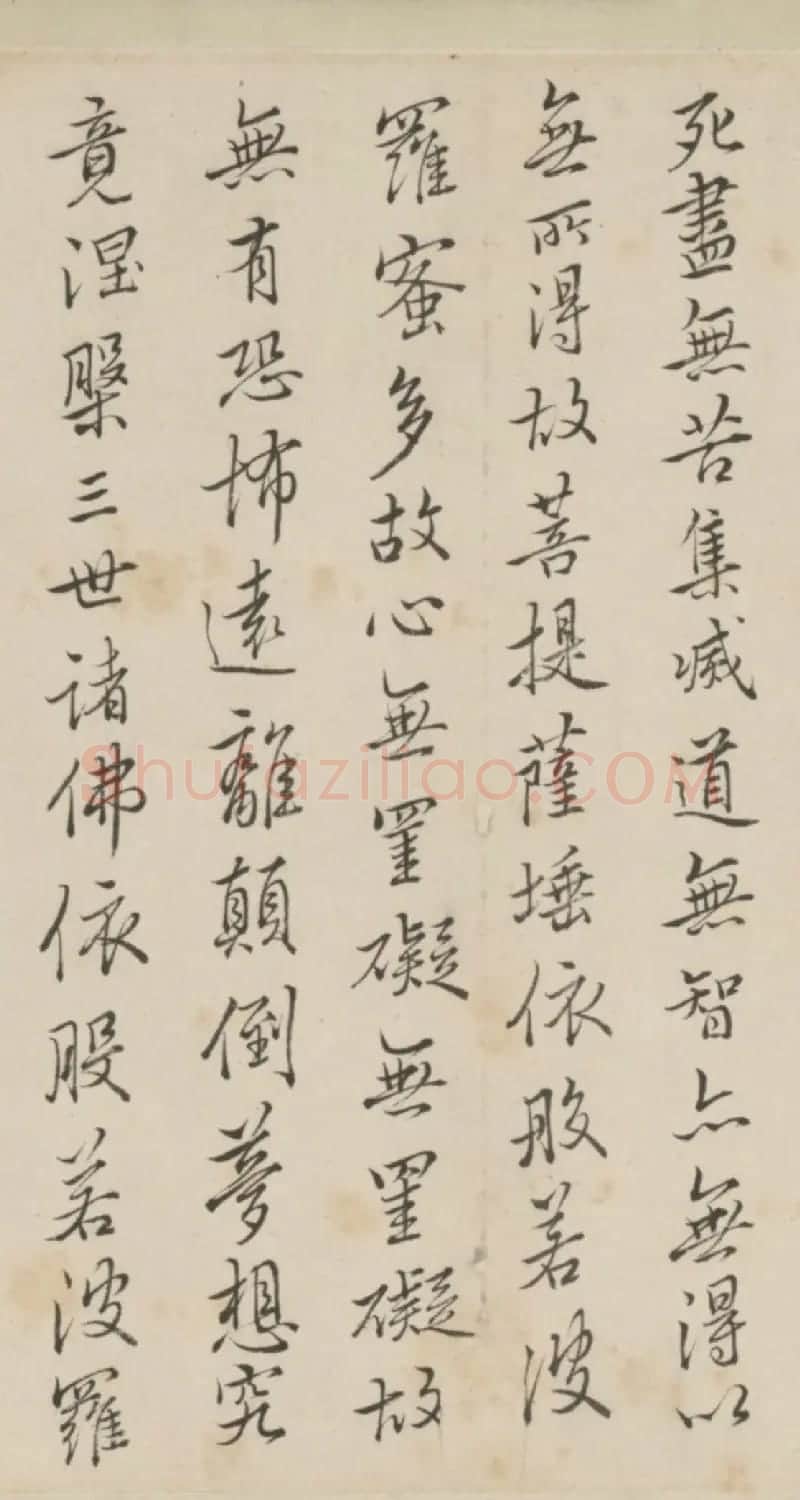 死盡無苦集滅道無智亦無得以
無所得故菩提薩埵依般若波
羅蜜多故心無罣礙無罣礙故
無有恐怖遠離顛倒夢想究
竟涅槃三世諸佛依般若波羅
Shufaziliao.COM